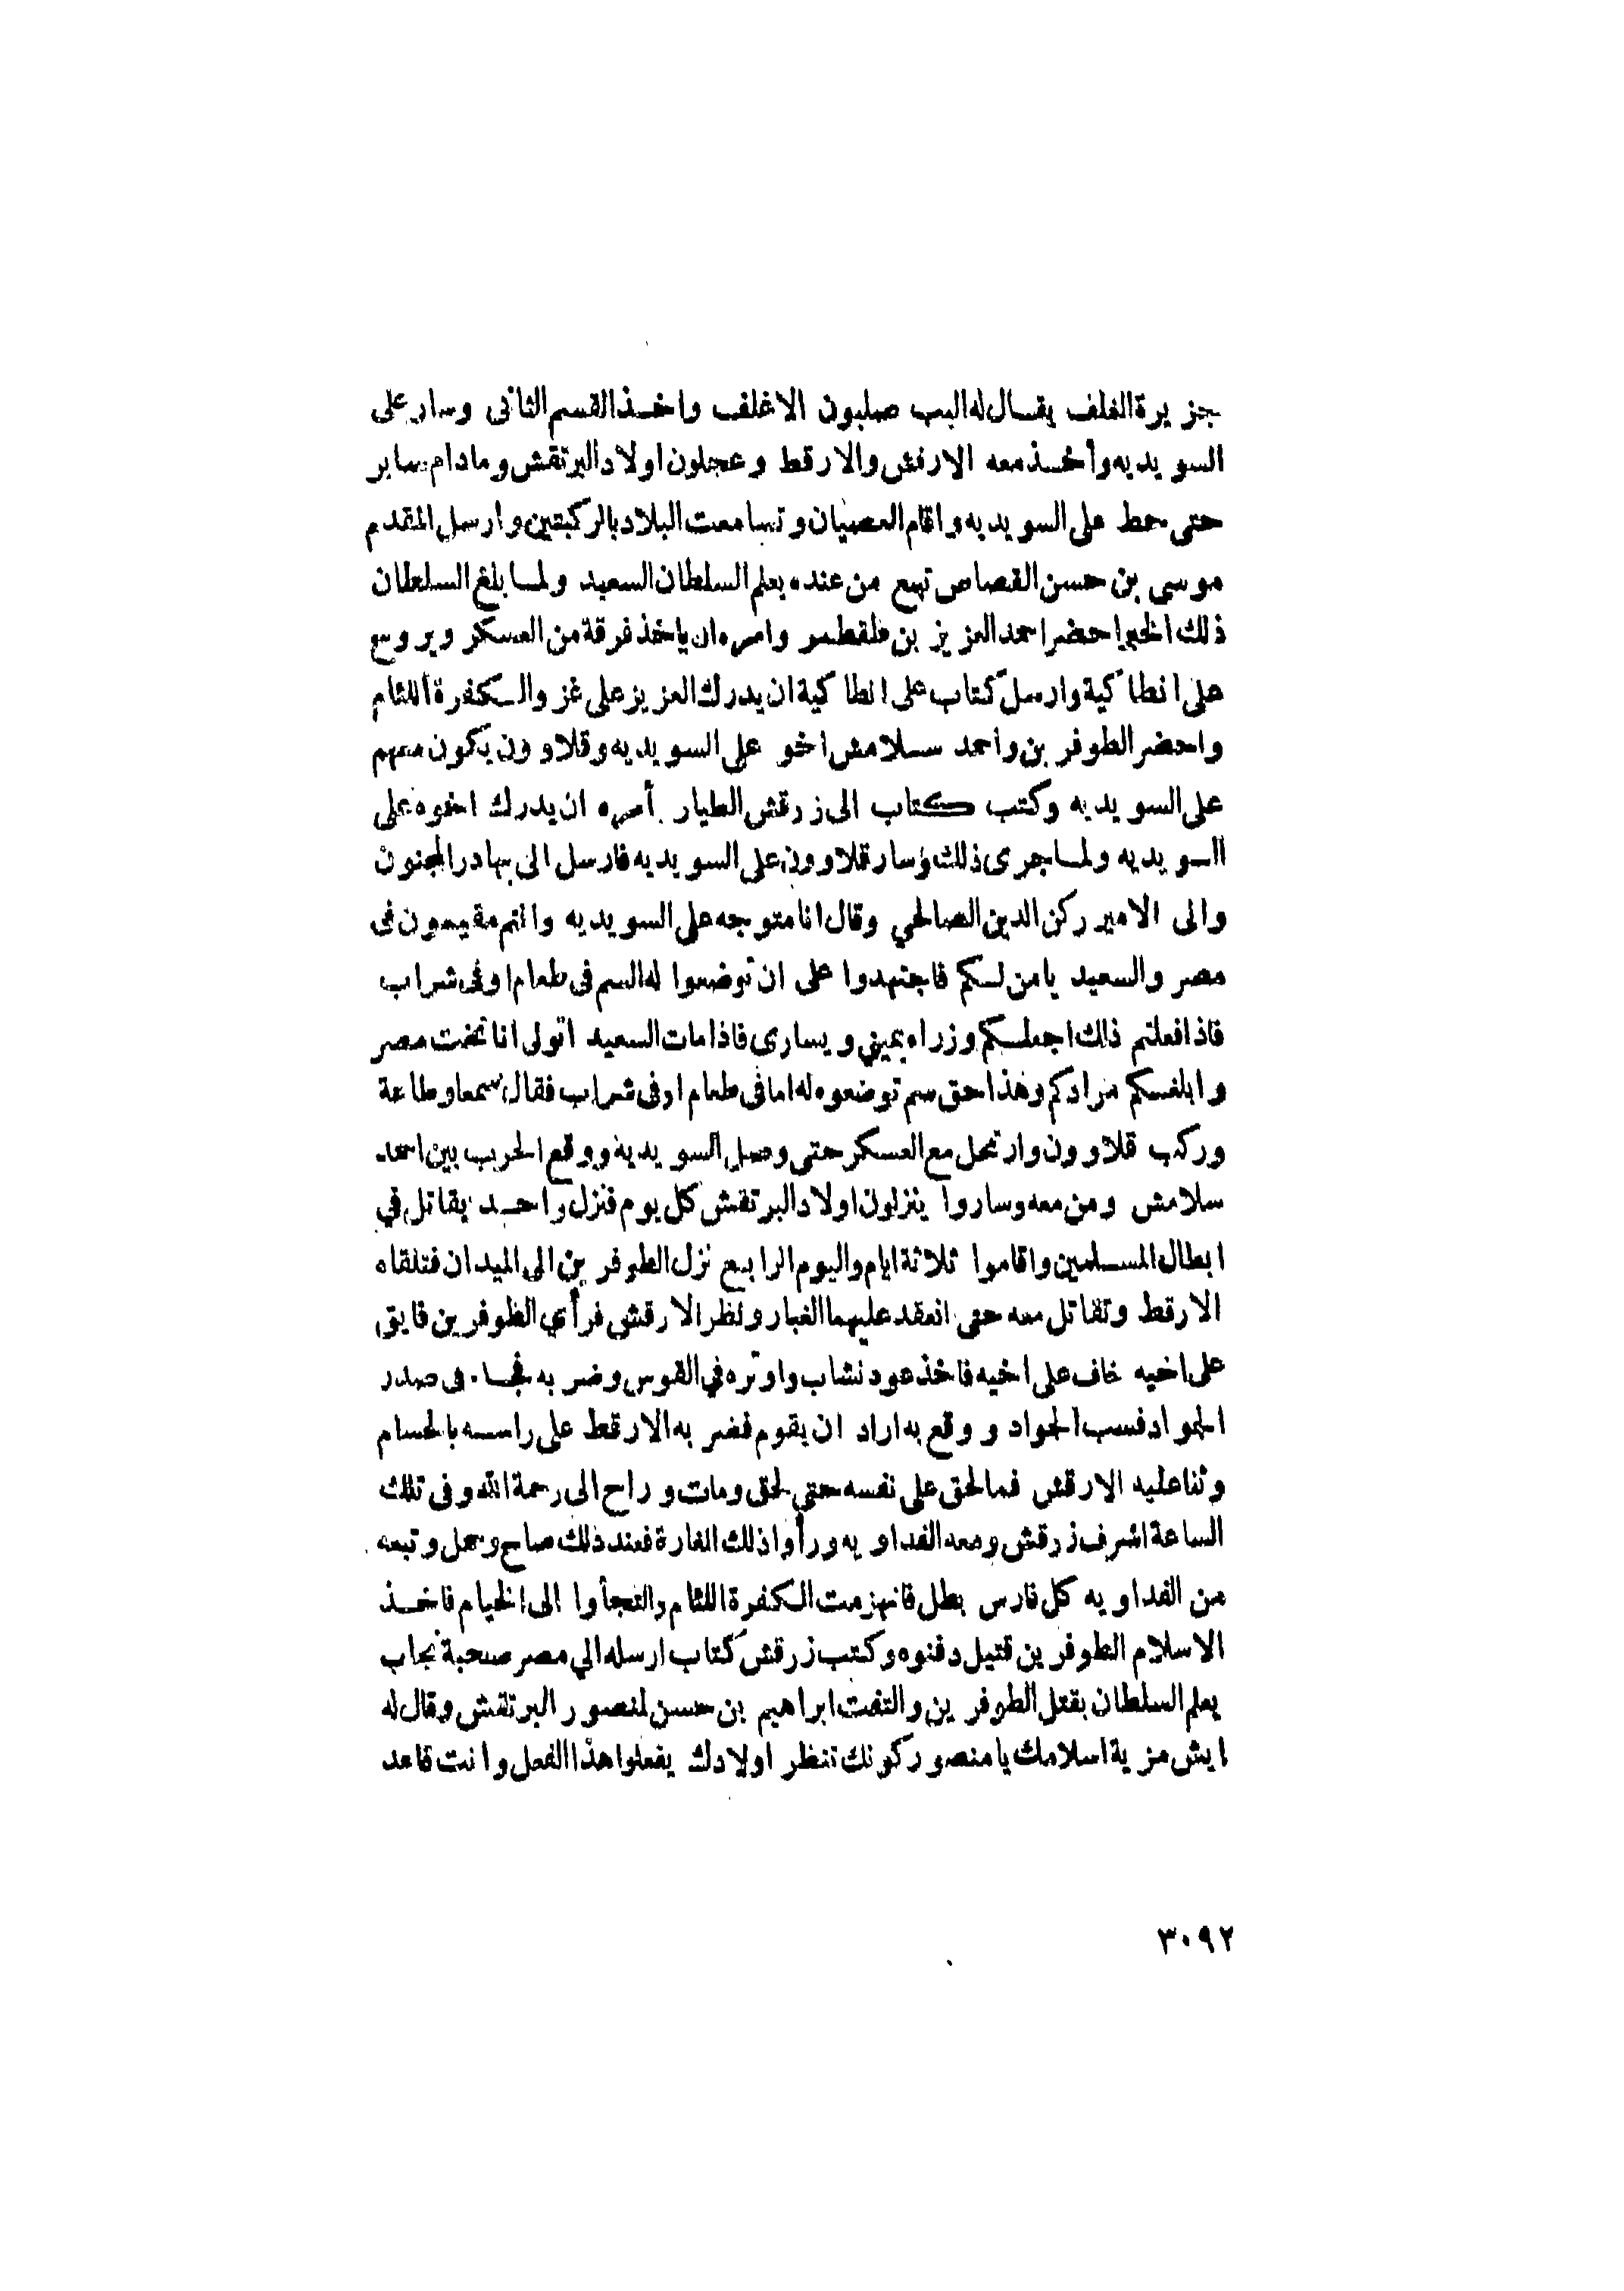 جزيرة الغلف يقال له البب صلبون الاغلف واخذ القسم الثاني وسار على
السويديه وأخذ معه الارقش والارقط وعجلون اولاد البرتقش ومادام ساير
حتى حط على السويديه واقام العصيان وتسامعت البلاد بالركبتين وارسل المقدم
موسى بن حسن القصاص تبع من عنده يعلم السلطان السعيد ولما بلغ السلطان
ذلك الخبر احضر احمد العزيز بن قلقطمر وامره ان ياخذ فرقة من العسكر ويروح
على انطاكية وارسل كتاب على انطاكية ان يدرك العزيز على غزو الكفرة اللئام
واحضر الطوفرين واحمد سلامش اخو على السويديه وقلاوون يكون معهم
على السويديه وكتب كتاب الى زرقش الطيار أمره ان يدرك اخوه على
السويديه ولما جرى ذلك وسار قلاوون على السويديه فارسل الى بهادر المجنون
والى الامير ركن الدين الصالحي وقال انا متوجه على السويديه وانتم مقيمون فى
مصر والسعيد يامن لكم فاجتهدوا على ان توضعوا له السم فى طعام اوفى شراب
فاذا فعلتم ذلك اجعلكم وزراء يميني ويسارى فاذا مات السعيد اتولى انا تخت مصر
وابلغكم مرادكم وهذا حق سم توضعوه له اما فى طعام اوفى شراب فقال سمعا وطاعة
وركب قلاوون وارتحل مع العسكر حتى وصل السويديه ووقع الحرب بين احمد
سلامش ومن معه وساروا ينزلون اولاد البرتقش كل يوم فنزل واحد يقاتل في
ابطال المسلمين واقاموا ثلاثة ايام واليوم الرابع نزل الطوفرين الى الميدان فتلقاه
الارقط وتقاتل معه حتى انعقد عليهما الغبار ونظر الارقش فرأي الطوفرين فايق
على اخيه خاف على اخيه فاخذ عود نشاب واوتره في القوس وضربه فجاء فى صدر
الجواد فسب الجواد ووقع به اراد ان يقوم فضربه الارقط على راسه بالحسام
وثنا عليه الارقش فما لحق على نفسه حتي لحق ومات وراح الى رحمة الله وفى تلك
الساعة اشرف زرقش ومعه الفداويه ورأوا ذلك الغارة فعند ذلك صاح وحمل وتبعه
من الفداويه كل فارس بطل فانهزمت الكفرة اللئام والتجأوا الى الخيام فاخذ
الاسلام الطوفرين قتيل دفنوه وكتب زرقش كتاب ارسله الي مصر صحبة نجاب
يعلم السلطان بقتل الطوفرين والتفت ابراهيم بن حسن لمنصور البرتقش وقال له
ايش مزية اسلامك يا منصور كونك تنظر اولادك يفعلوا هذا الفعل وانت قاعد
٣٠٩٢